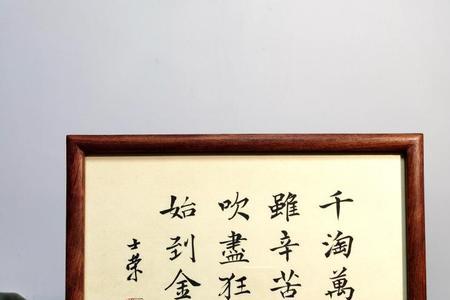 千淘萬
雖辛苦
吹盡狂
始到金
士榮